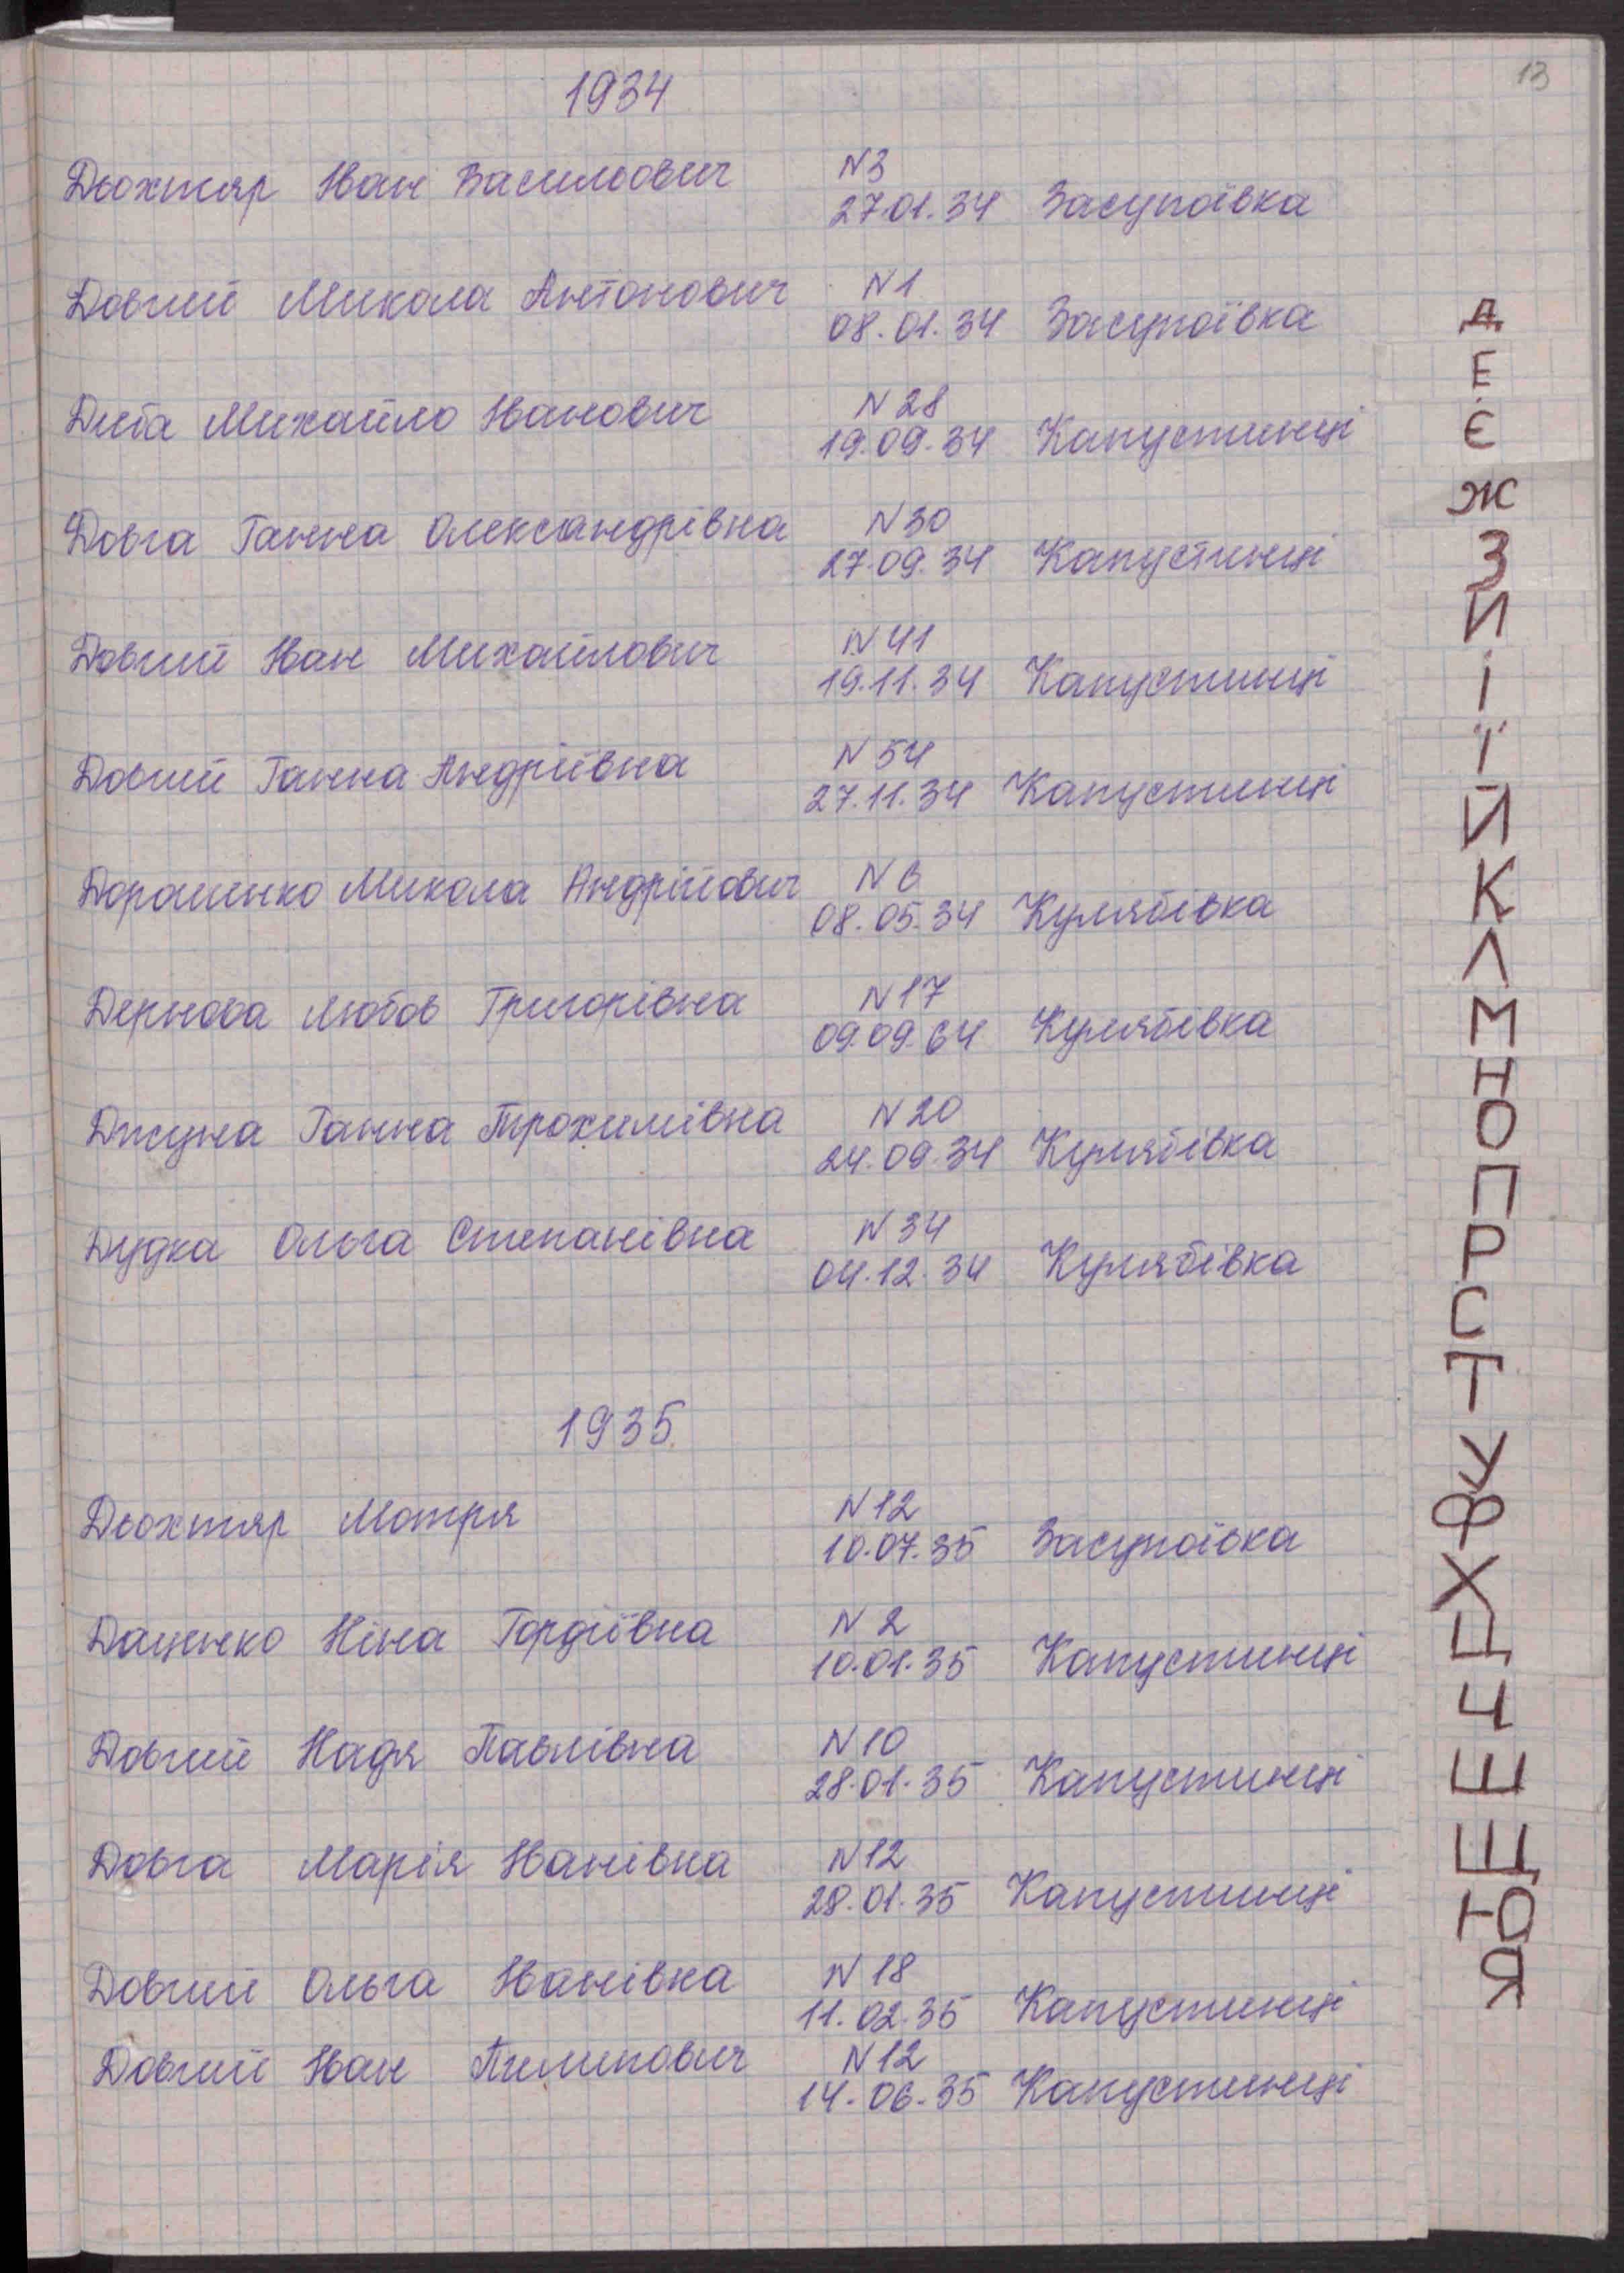 13
1934
Дьохтяр Іван Васильович N3
27.01.34 Засупоївка
Довгий Микола Антонович N1
08.01.34 Засупоївка
Диба Михайло Іванович N28
19.09.34 Капустинці
Довга Ганна Олександрівна N30
27.09.34 Капустинці
Довгий Іван Михайлович N41
19.11.34 Капустинці
Довгий Ганна Андріївна N54
27.11.34 Капустинці
Дорошенко Микола Андрійович N6
08.05.34 Кулябівка
Дернова Любов Григорівна N17
09.09.64 Кулябівка
Ганна Трохимівна N20
24.09.34 Кулябівка
Дудка Ольга Степанівна N34
04.12.34 Кулябівка
1935
Дьохтяр Мотря N12
10.07.35 Засупоївка
Даценко Ніна Гордіївна N2
10.01.35 Капустинці
Довгий Надя Павлівна N10
28.01.35 Капустинці
Довга Марія Іванівна N12
28.01.35 Капустинці
Довгий Ольга Іванівна N18
11.02.35 Капустинці
Довгий Іван Пилипович N12
14.06.35 Капустинці
Д
Е
Є
Ж
З
И
І
Ї
Й
К
Л
М
Н
О
П
Р
С
Т
У
Ф
Х
Ц
Ч
Ш
Щ
Ю
Я